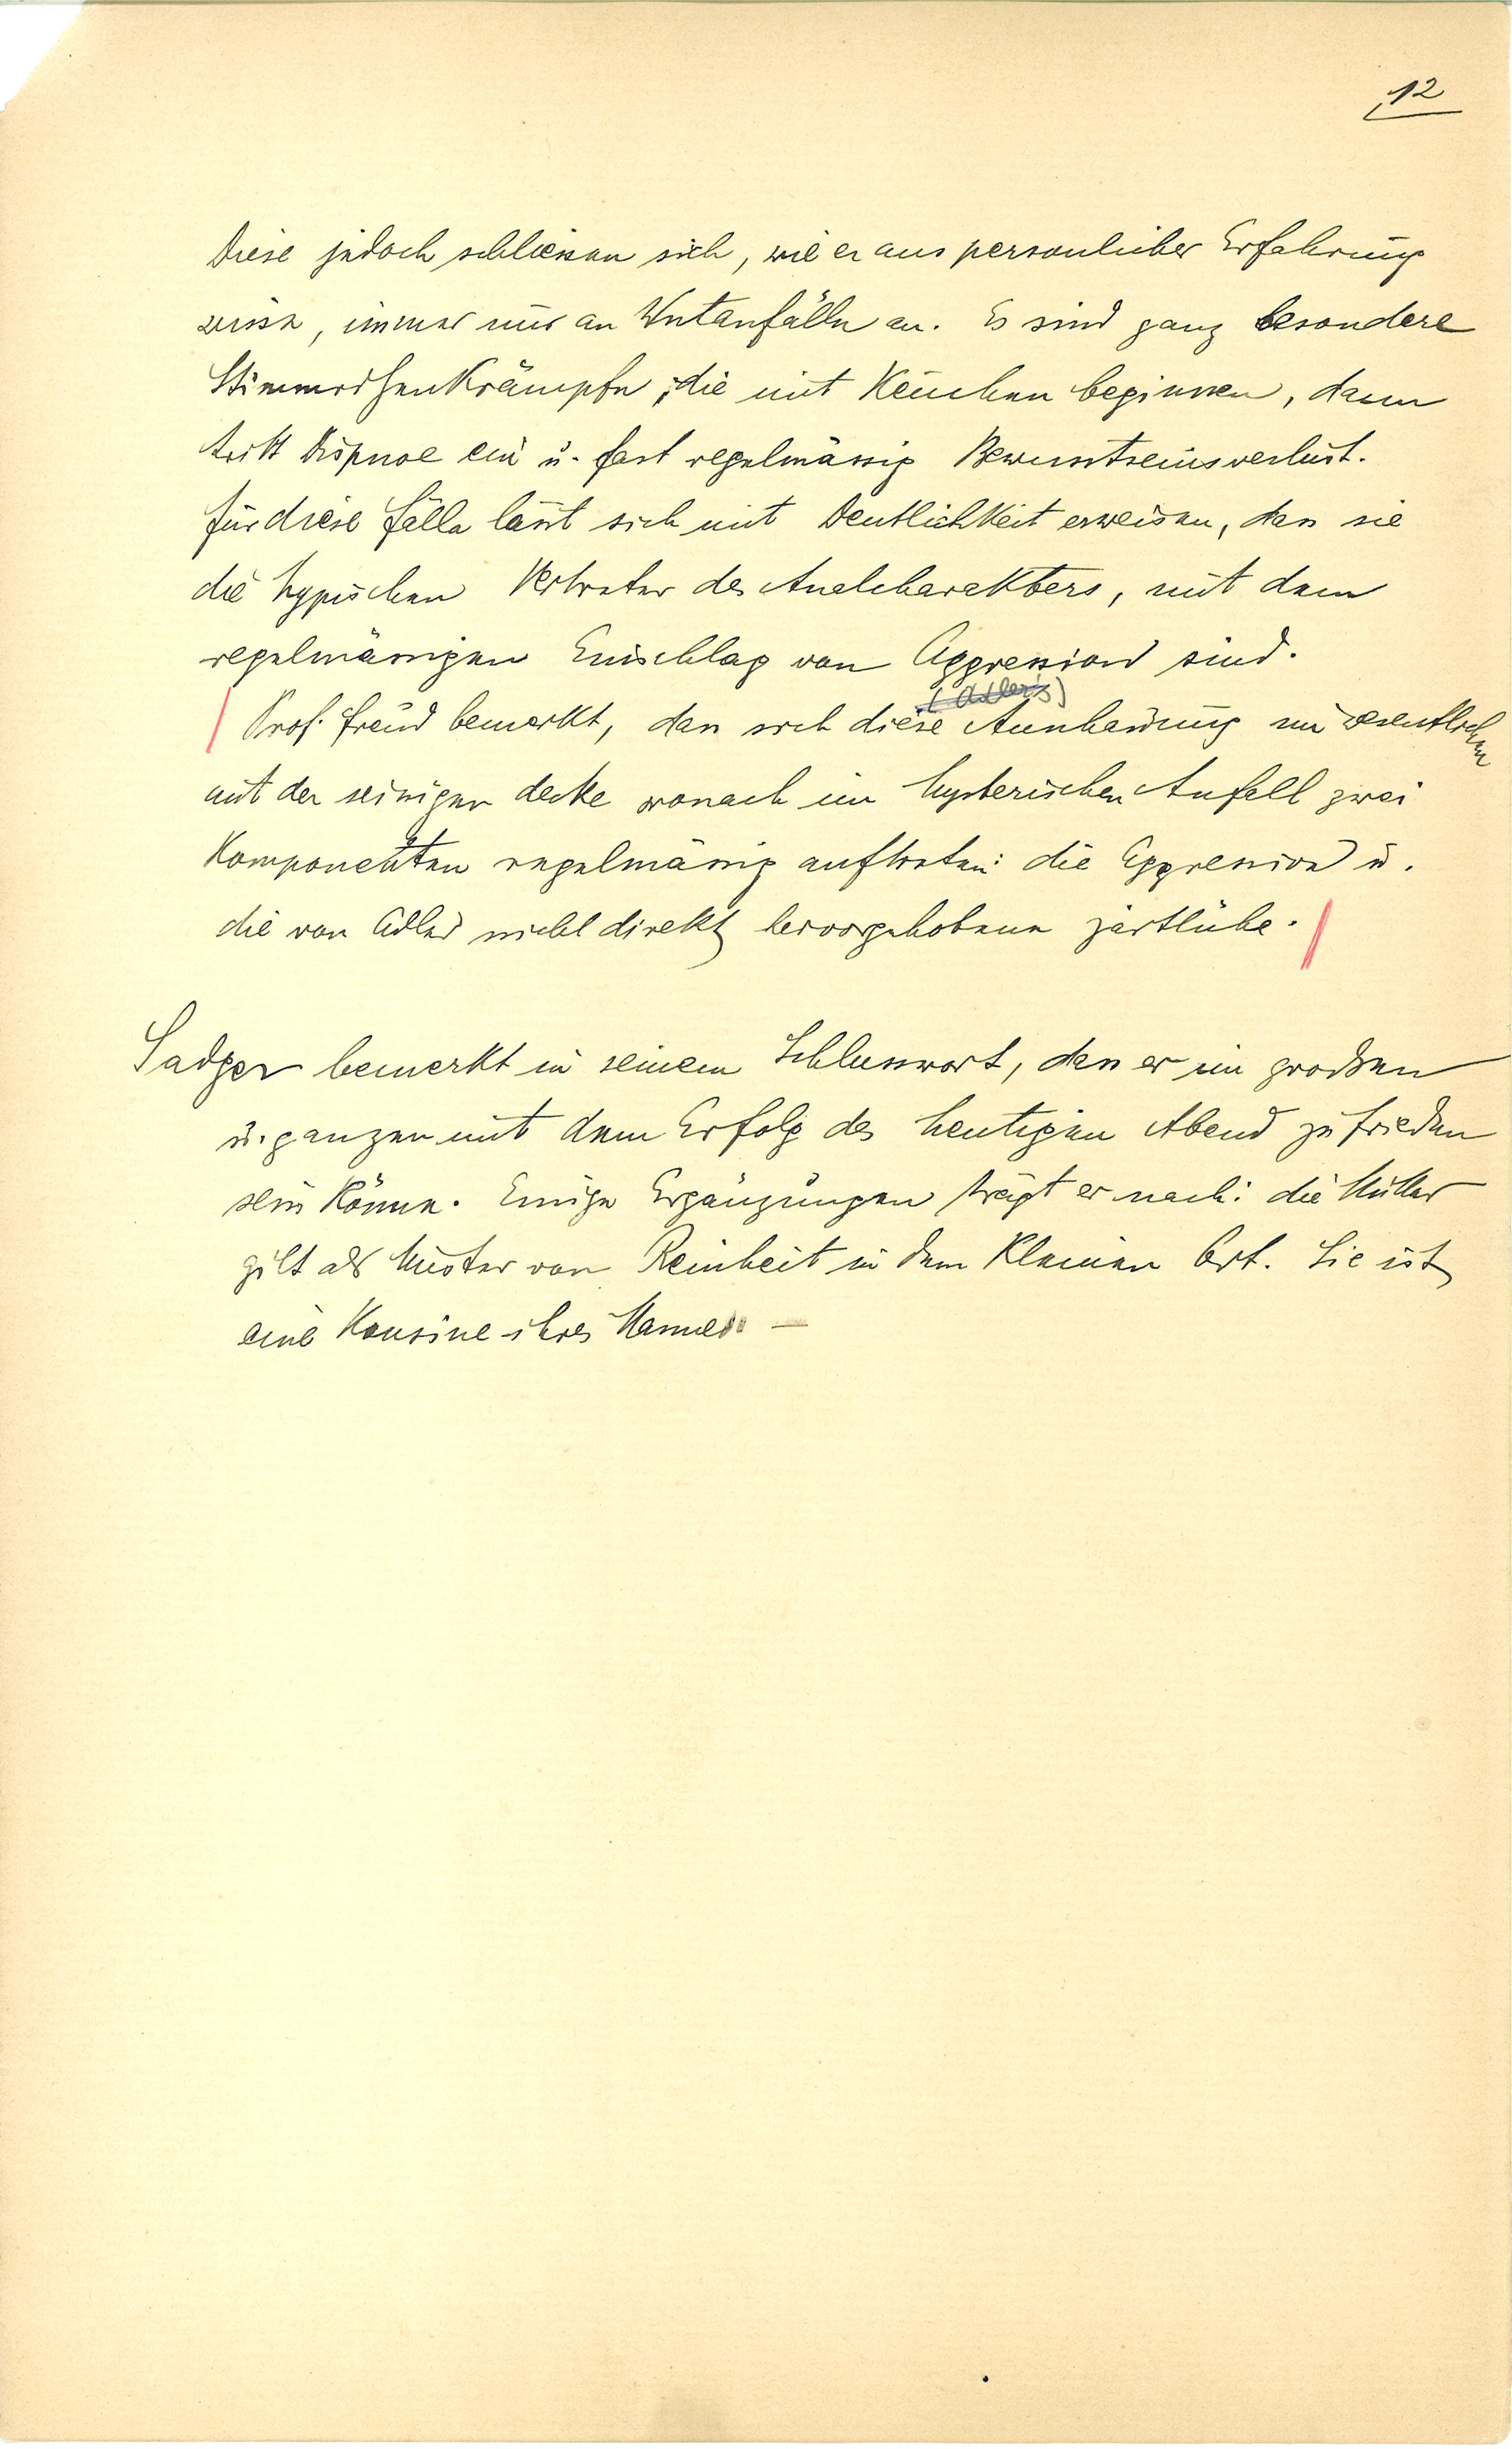 12
Diese jedoch schliessen sich, wie er aus persönlicher Erfahrung
wisse, immer nur an Wutanfälle an. Es sind ganz besondere
Stimmritzenkrämpfe, die mit Keuchen beginnen, dann
tritt Dispnoe ein u. fast regelmässig Bewusstseinsverlust.
Für diese Fälle lässt sich mit Deutlichkeit erweisen, dass sie
die typischen Vertreter des Analcharakters, mit dem
regelmässigen Einschlag von Aggression sind.
(Adlers)
Prof. Freud bemerkt, dass sich diese Anschauung im wesentlichen
mit der seinigen decke wonach im hysterischen Anfall zwei
Komponenten regelmässig auftreten: die Aggression u.
die von Adler nicht direkt hervorgehobene zärtliche.
Sadger bemerkt in seinem Schlusswort, dass er im grossen
u. ganzen mit dem Erfolg des heutigen Abend zufrieden
sein könne. Einige Ergänzungen trägt er nach: die Mutter
gilt als Muster von Reinheit in dem kleinen Ort. Sie ist
eine Kousine ihres Mannes. —